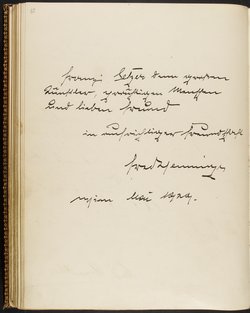 Franz Setzer dem großen
Künstler, prächtigen Menschen
und lieben Freund
in aufrichtiger Freundschaft
Fred Hennings
Wien Mai 1929.